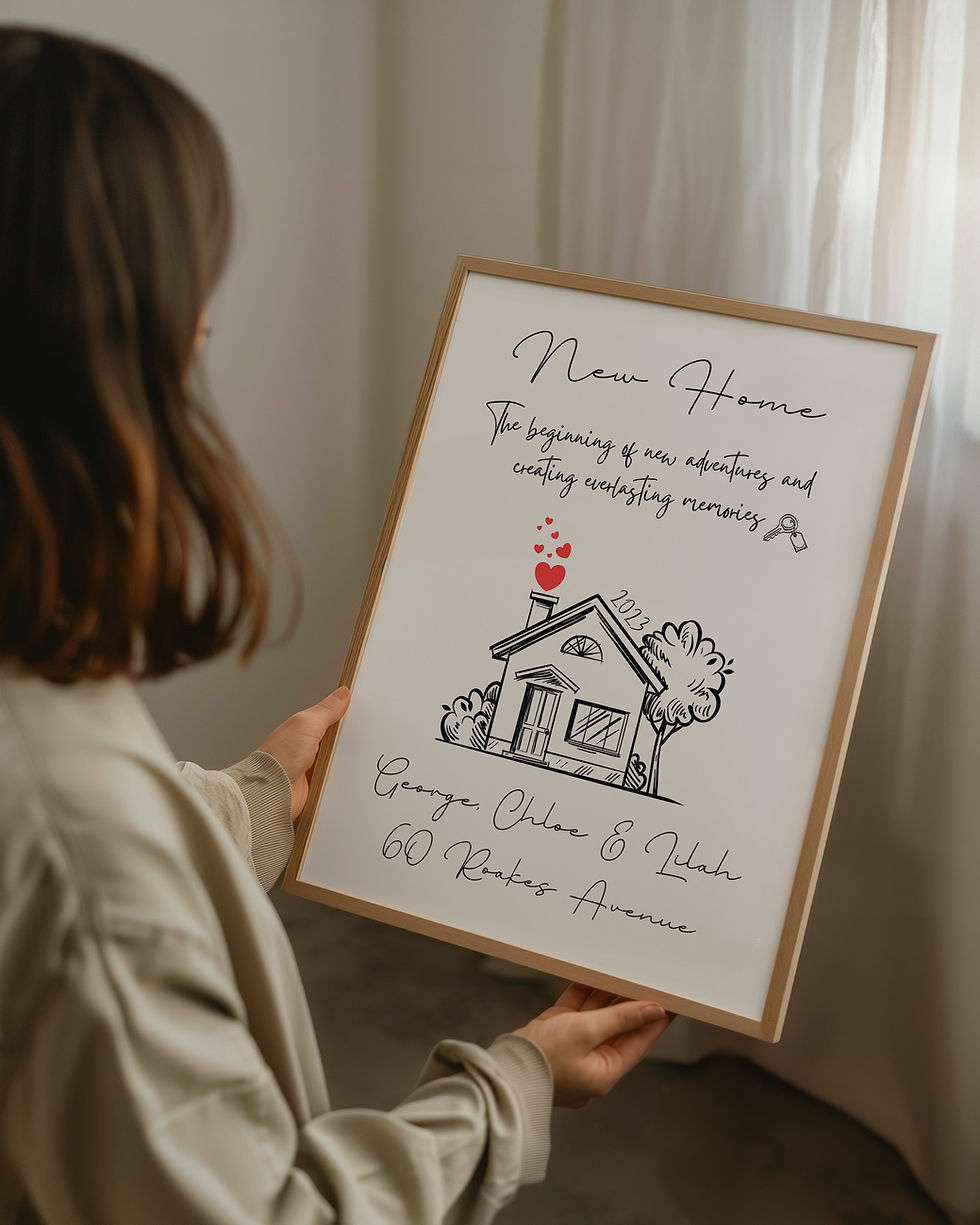 New Home
The beginning of new adventures and
creating everlasting memories
2023
George, Chloe & Lilah
60 Roakes Avenue